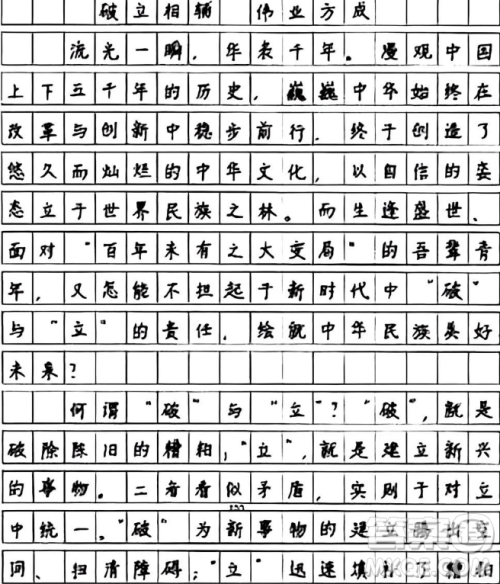 破立相辅 伟业方成
流光一瞬，华表千年。漫观中国
上下五千年的历史，巍巍中华始终在
改革与创新中稳步前行，终于创造了
悠久而灿烂的中华文化，以自信的姿
态立于世界民族之林。而生逢盛世、
面对“百年未有之大变局”的吾辈青
年，又怎能不担起于新时代中“破”
与“立”的责任，绘就中华民族美好
未来？
何谓“破”与“立”？“破”，就是
破除陈旧的糟粕；“立”，就是建立新兴
的事物。二者看似矛盾，实则于对立
中统一。“破”为新事物的建立腾出空
间、扫清障碍；“立”迅速填补了糟粕